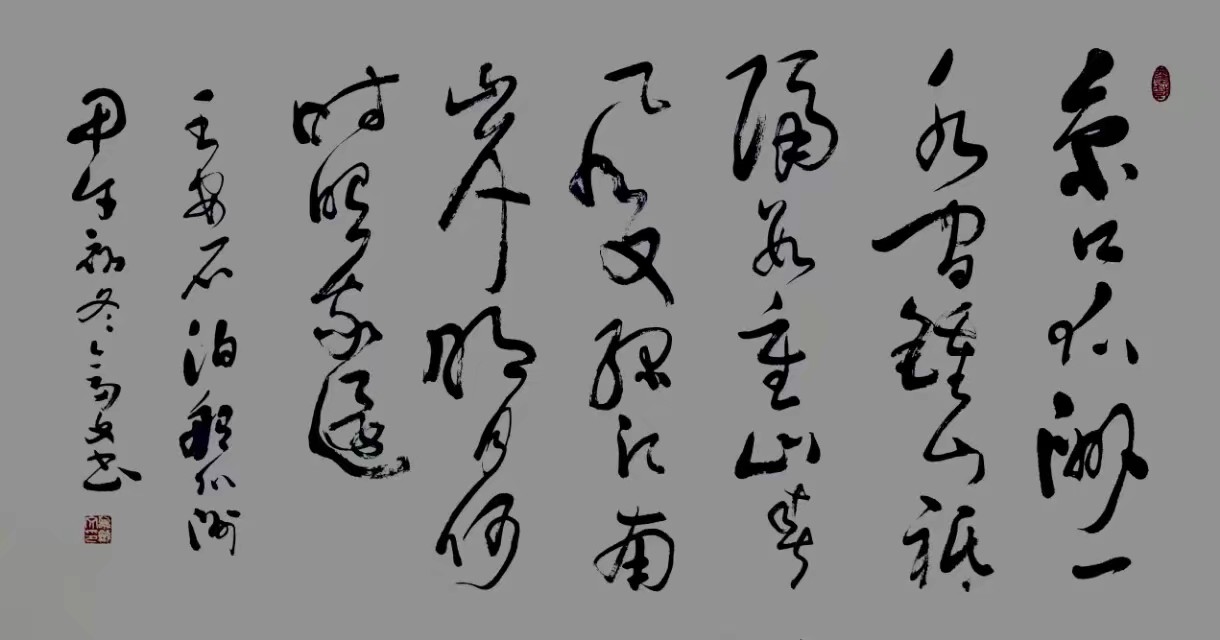 京口瓜洲一
水间鍾山祗
隔数重山春
风又绿江南
岸明月何
时照我還
王安石泊船瓜洲
甲午初冬文书